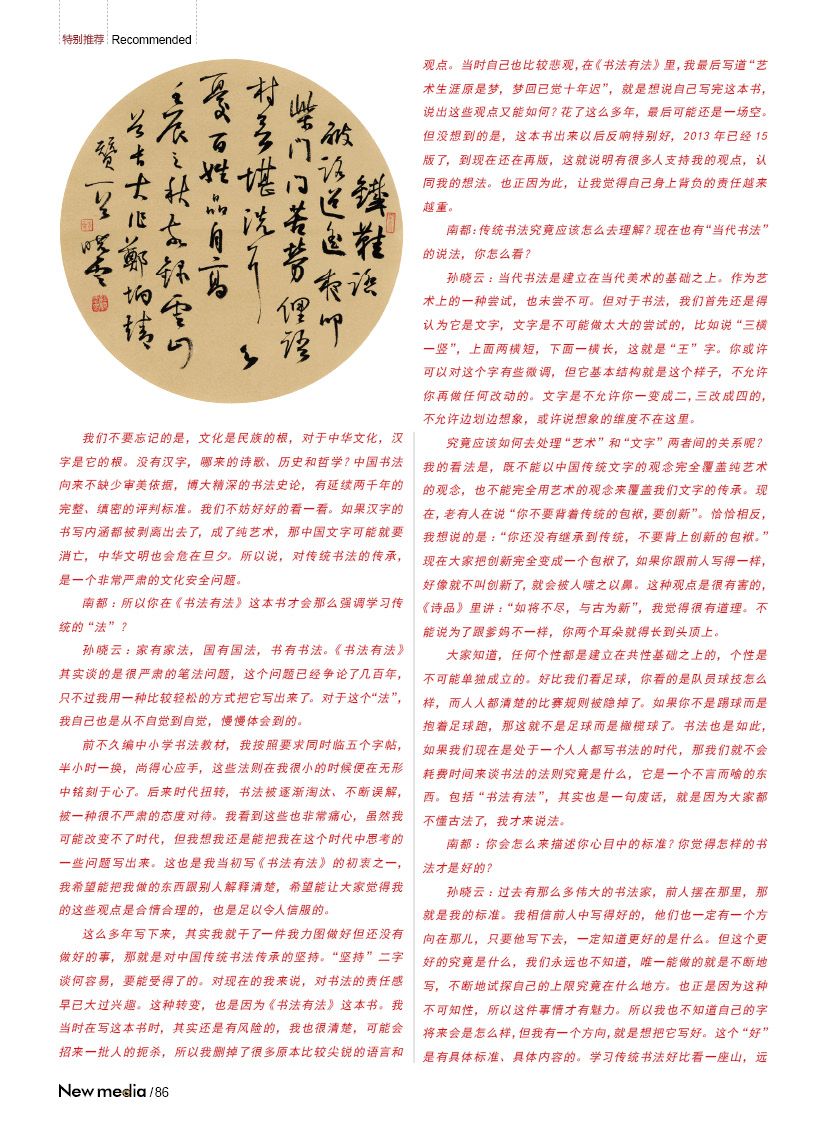 特别推荐 Recommended
鐵鞋
破
夜叩
柴門問苦勞俚語
村言堪洗耳
憂百姓品自高
壬辰之秋
大作鄭
曉雲
我们不要忘记的是，文化是民族的根，对于中华文化，汉
字是它的根。没有汉字，哪来的诗歌、历史和哲学？中国书法
向来不缺少审美依据，博大精深的书法史论，有延续两千年的
完整、缜密的评判标准。我们不妨好好的看一看。如果汉字的
书写内涵都被剥离出去了，成了纯艺术，那中国文字可能就要
消亡，中华文明也会危在旦夕。所以说，对传统书法的传承，
是一个非常严肃的文化安全问题。
南都：所以你在《书法有法》这本书才会那么强调学习传
统的“法”？
孙晓云：家有家法，国有国法，书有书法。《书法有法》
其实谈的是很严肃的笔法问题，这个问题已经争论了几百年，
只不过我用一种比较轻松的方式把它写出来了。对于这个“法”，
我自己也是从不自觉到自觉，慢慢体会到的。
前不久编中小学书法教材，我按照要求同时临五个字帖，
半小时一换，尚得心应手，这些法则在我很小的时候便在无形
中铭刻于心了。后来时代扭转，书法被逐渐淘汰、不断误解，
被一种很不严肃的态度对待。我看到这些也非常痛心，虽然我
可能改变不了时代，但我想我还是能把我在这个时代中思考的
一些问题写出来。这也是我当初写《书法有法》的初衷之一，
我希望能把我做的东西跟别人解释清楚，希望能让大家觉得我
的这些观点是合情合理的，也是足以令人信服的。
这么多年写下来，其实我就干了一件我力图做好但还没有
做好的事，那就是对中国传统书法传承的坚持。“坚持”二字
谈何容易，要能受得了的。对现在的我来说，对书法的责任感
早已大过兴趣。这种转变，也是因为《书法有法》这本书。我
当时在写这本书时，其实还是有风险的，我也很清楚，可能会
招来一批人的扼杀，所以我删掉了很多原本比较尖锐的语言和
观点。当时自己也比较悲观，在《书法有法》里，我最后写道“艺
术生涯原是梦，梦回已觉十年迟”，就是想说自己写完这本书，
说出这些观点又能如何？花了这么多年，最后可能还是一场空。
但没想到的是，这本书出来以后反响特别好，2013 年已经 15
版了，到现在还在再版，这就说明有很多人支持我的观点，认
同我的想法。也正因为此，让我觉得自己身上背负的责任越来
越重。
南都：传统书法究竟应该怎么去理解？现在也有“当代书法”
的说法，你怎么看？
孙晓云：当代书法是建立在当代美术的基础之上。作为艺
术上的一种尝试，也未尝不可。但对于书法，我们首先还是得
认为它是文字，文字是不可能做太大的尝试的，比如说“三横
一竖”，上面两横短，下面一横长，这就是“王”字。你或许
可以对这个字有些微调，但它基本结构就是这个样子，不允许
你再做任何改动的。文字是不允许你一变成二，三改成四的，
不允许边划边想象，或许说想象的维度不在这里。
究竟应该如何去处理“艺术”和“文字”两者间的关系呢？
我的看法是，既不能以中国传统文字的观念完全覆盖纯艺术
的观念，也不能完全用艺术的观念来覆盖我们文字的传承。现
在，老有人在说“你不要背着传统的包袱，要创新”。恰恰相反，
我想说的是：“你还没有继承到传统，不要背上创新的包袱。”
现在大家把创新完全变成一个包袱了，如果你跟前人写得一样，
好像就不叫创新了，就会被人嗤之以鼻。这种观点是很有害的，
《诗品》里讲：“如将不尽，与古为新”，我觉得很有道理。不
能说为了跟爹妈不一样，你两个耳朵就得长到头顶上。
大家知道，任何个性都是建立在共性基础之上的，个性是
不可能单独成立的。好比我们看足球，你看的是队员球技怎么
样，而人人都清楚的比赛规则被隐掉了。如果你不是踢球而是
抱着足球跑，那这就不是足球而是橄榄球了。书法也是如此，
如果我们现在是处于一个人人都写书法的时代，那我们就不会
耗费时间来谈书法的法则究竟是什么，它是一个不言而喻的东
西。包括“书法有法”，其实也是一句废话，就是因为大家都
不懂古法了，我才来说法。
南都：你会怎么来描述你心目中的标准？你觉得怎样的书
法才是好的？
孙晓云：过去有那么多伟大的书法家，前人摆在那里，那
就是我的标准。我相信前人中写得好的，他们也一定有一个方
向在那儿，只要他写下去，一定知道更好的是什么。但这个更
好的究竟是什么，我们永远也不知道，唯一能做的就是不断地
写，不断地试探自己的上限究竟在什么地方。也正是因为这种
不可知性，所以这件事情才有魅力。所以我也不知道自己的字
将来会是怎么样，但我有一个方向，就是想把它写好。这个“好”
是有具体标准、具体内容的。学习传统书法好比看一座山，远
New media / 86